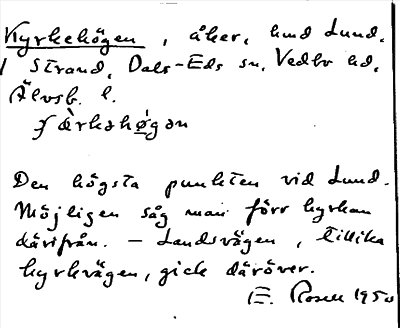 Kyrkehögen, åker, hmd Lund,
1 Strand, Dals-Eds sn, Vedbo hd,
Älvsb. l.
Den högsta punkten vid Lund.
Möjligen såg man förr kyrkan
därifrån. – Landsvägen, tillika
kyrkvägen, gick däröver.
E. Rosell 1950